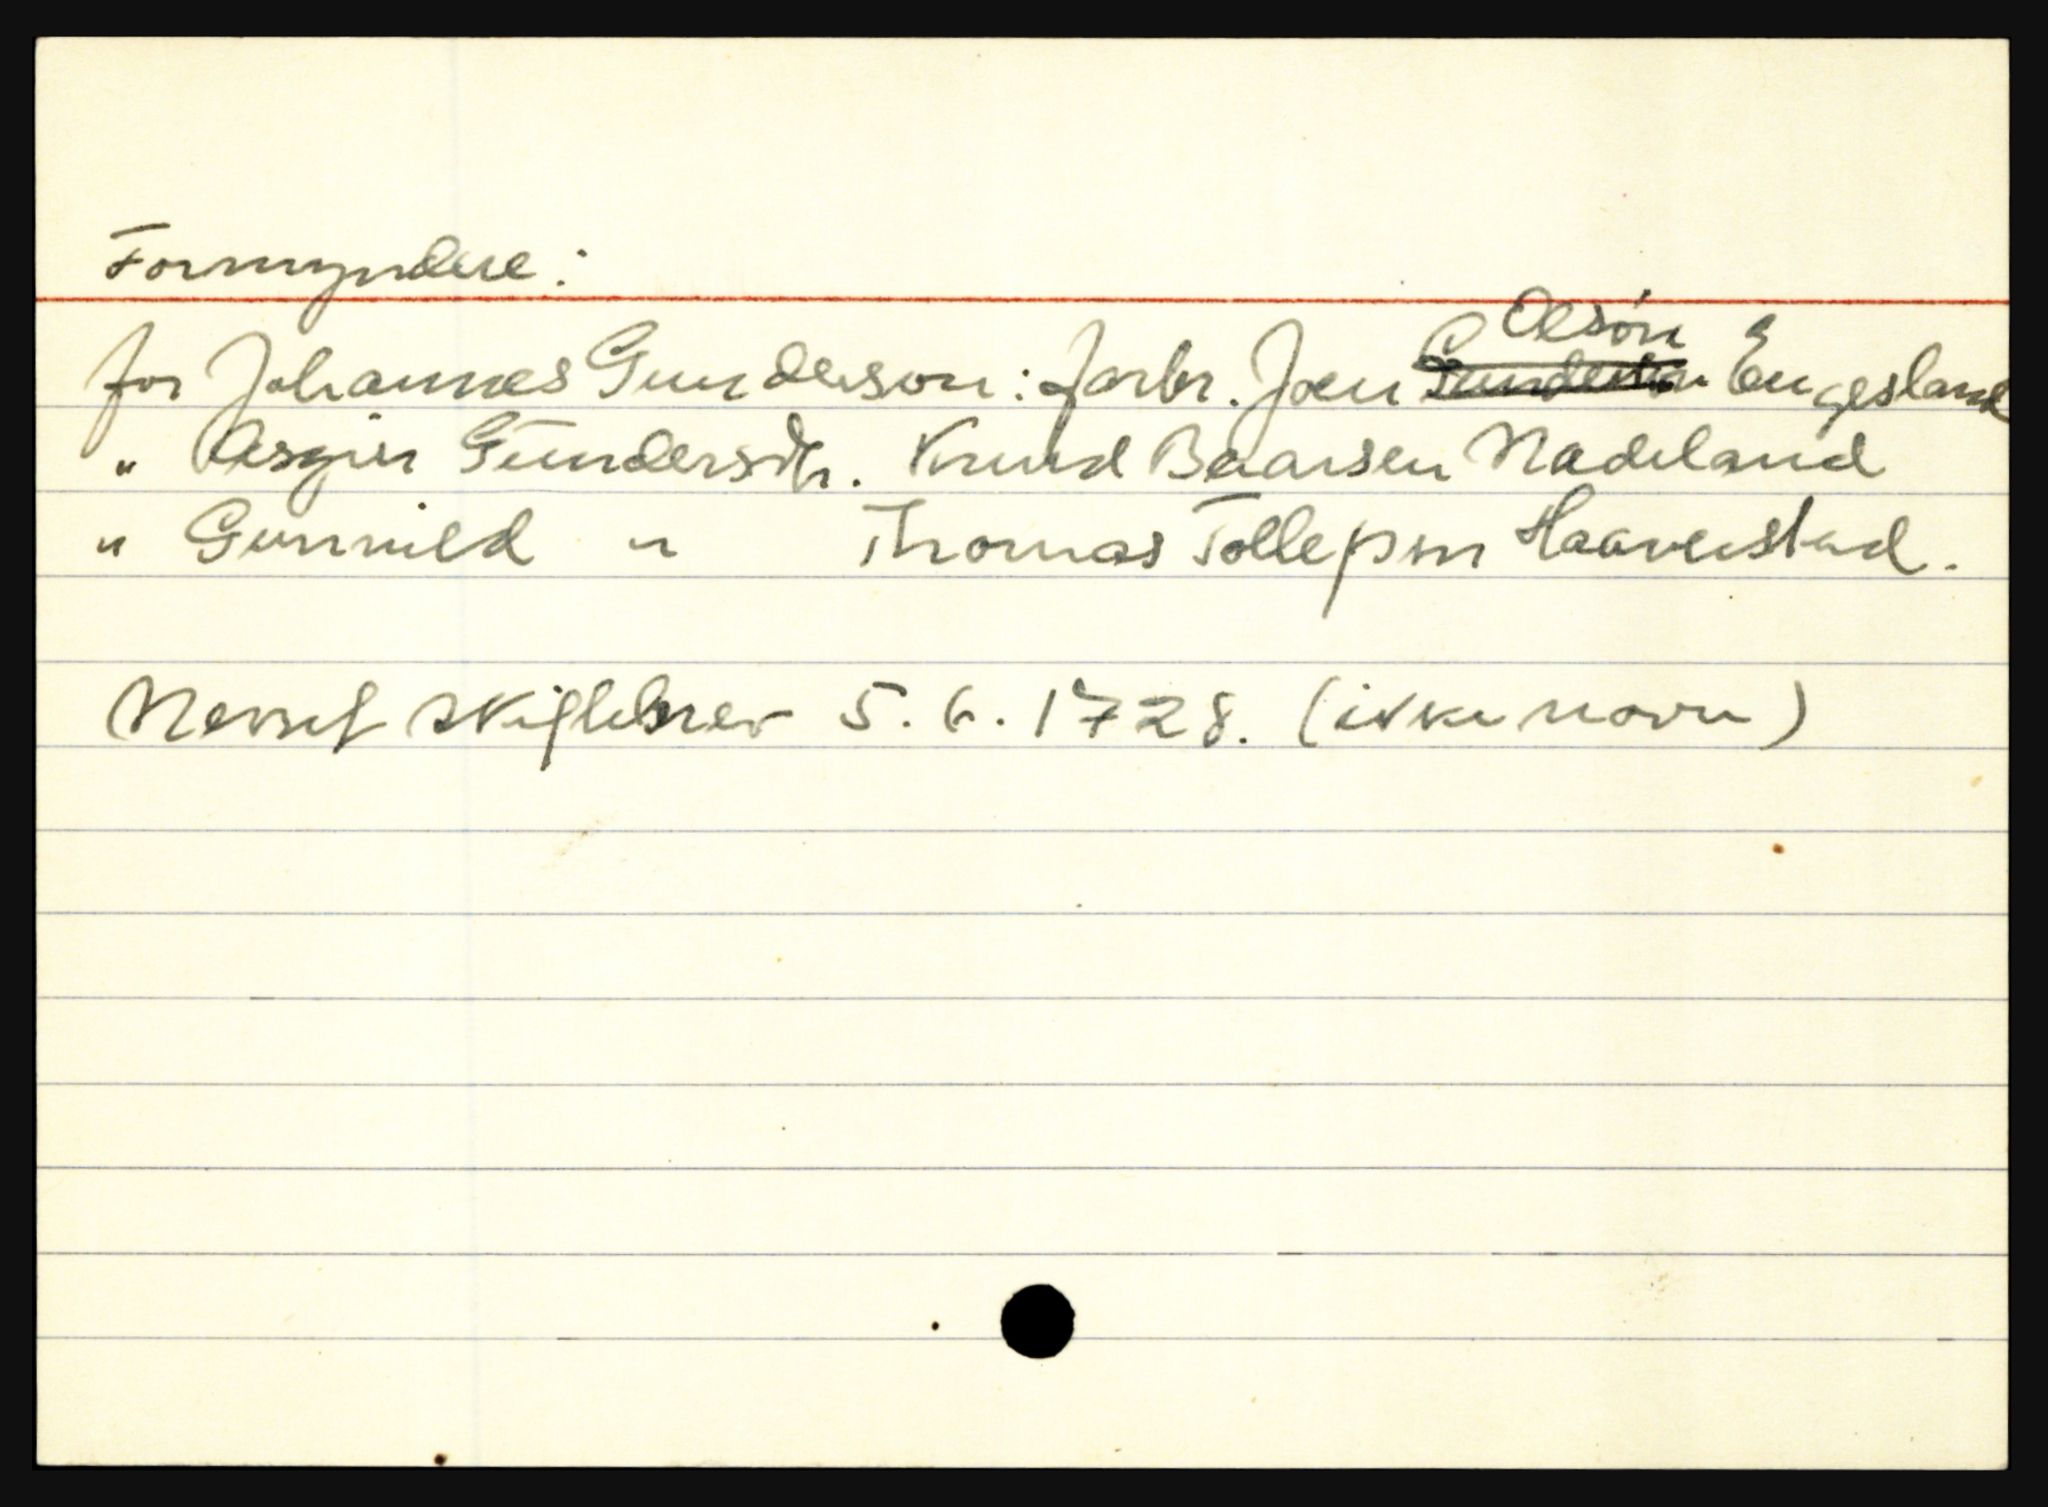 Formyndere:
for Johannes Gunderson: farbr. Joen Olsøn Engesland
" Asgier Gundersdtr. Knud Baarsen Nadeland
" Gunnild " Thomas Tollepsen Haaverstad.
Nevnt 5.6.1728. (ikke navn)